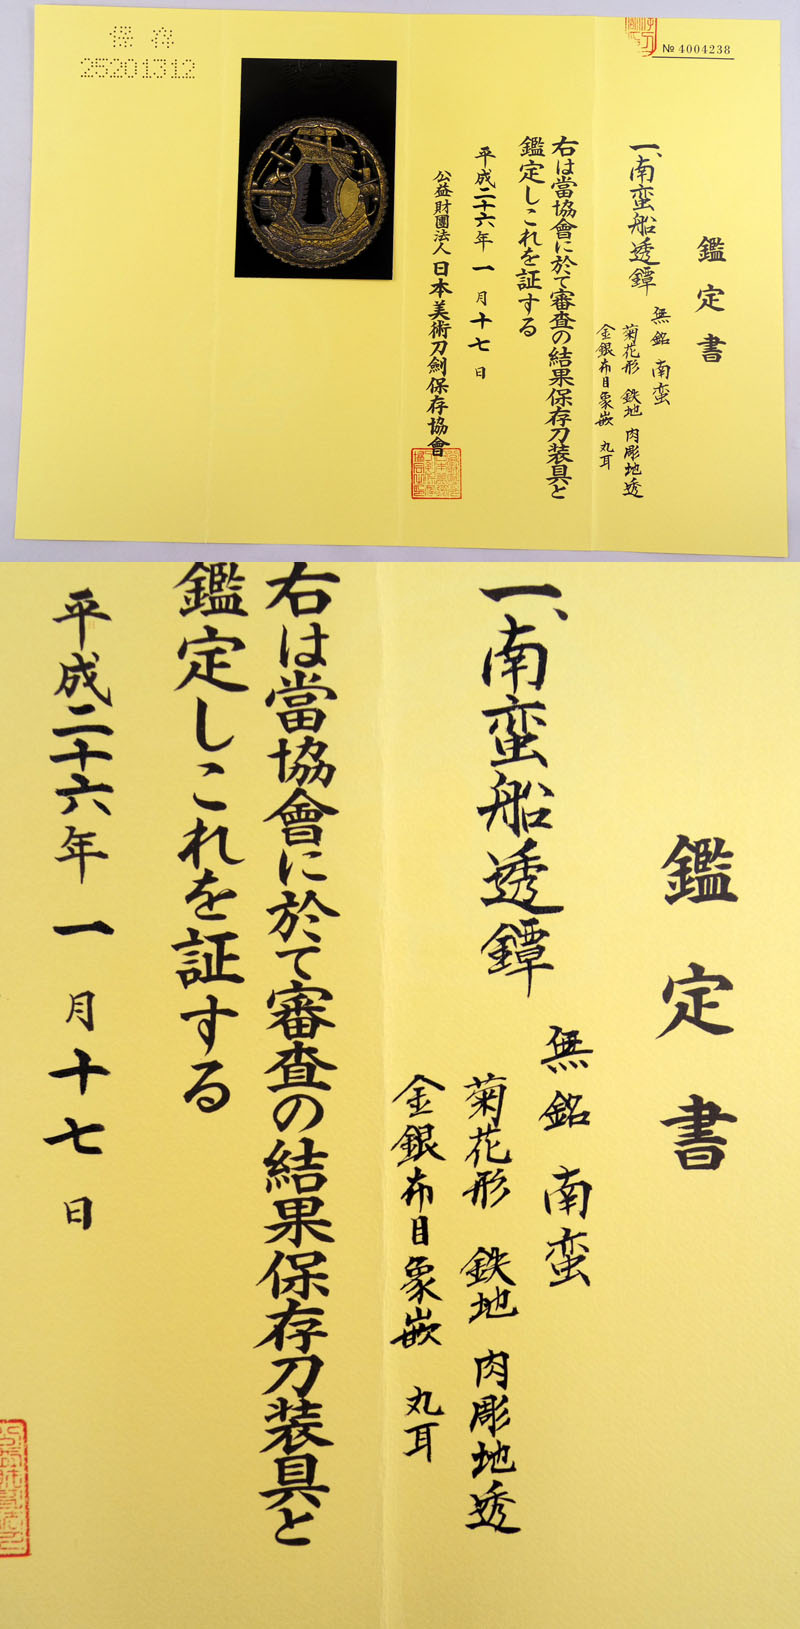 保存
25201312
№ 4004238
鑑定書
一、南蛮船透鐔
無銘 南蛮
菊花形 鉄地 肉彫地透
金銀布目象嵌 丸耳
右は當協會に於て審査の結果保存刀装具と
鑑定しこれを証する
平成二十六年一月十七日
公益財團法人 日本美術刀劍保存協會
鑑定書
一、南蛮船透鐔
無銘 南蛮
菊花形 鉄地 肉彫地透
金銀布目象嵌 丸耳
右は當協會に於て審査の結果保存刀装具と
鑑定しこれを証する
平成二十六年一月十七日